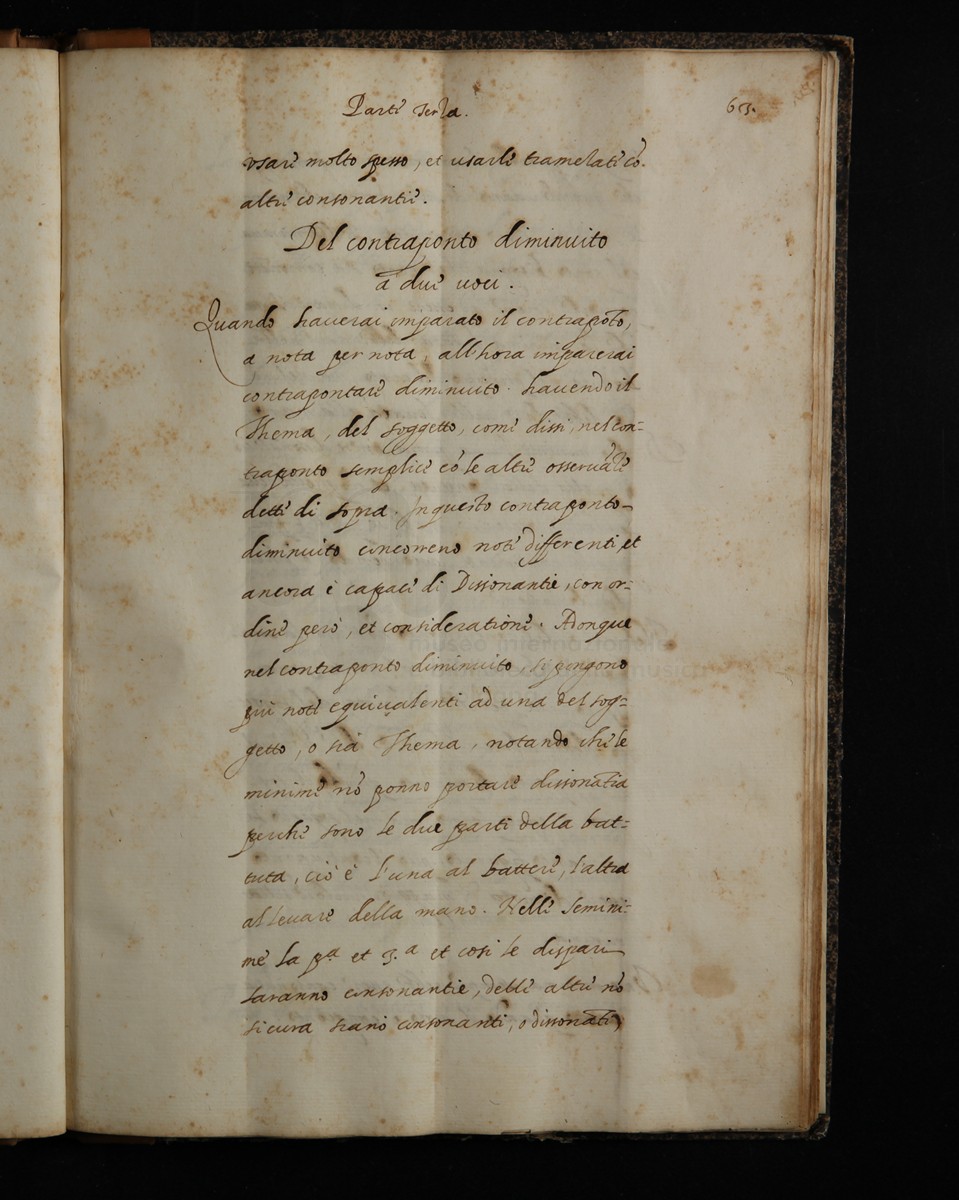 Parte Terza. 63.
usare molto spesso, et usarle tramelate cõ
altre consonantie.
Del contraponto diminuito
a due voci.
Quando haverai imparato il contrapõto,
a nota per nota, all'hora imparerai
contrapontare diminuito. havendo il
Thema, del soggetto, come dissi, nel con=
traponto semplice cõ le altre osservãze
dette di sopra. In questo contraponto
diminuito concorreno note differenti et
ancora è capace di Dissonantie, con or=
dine però, et consideratione. Adonque
nel contraponto diminuito, si pongono
più note equivalenti ad una del sog=
getto, o sia Thema, notando che le
minime nõ ponno portare dissonãtia
perche sono le due parti della bat=
tuta, ciò è l'una al battere, l'altra
al levare della mano. Nelle semini=
me la pª et 3.ª et cosi le dispari
saranno consonantie, delle altre nõ
si cura siano consonanti, o dissonãti,